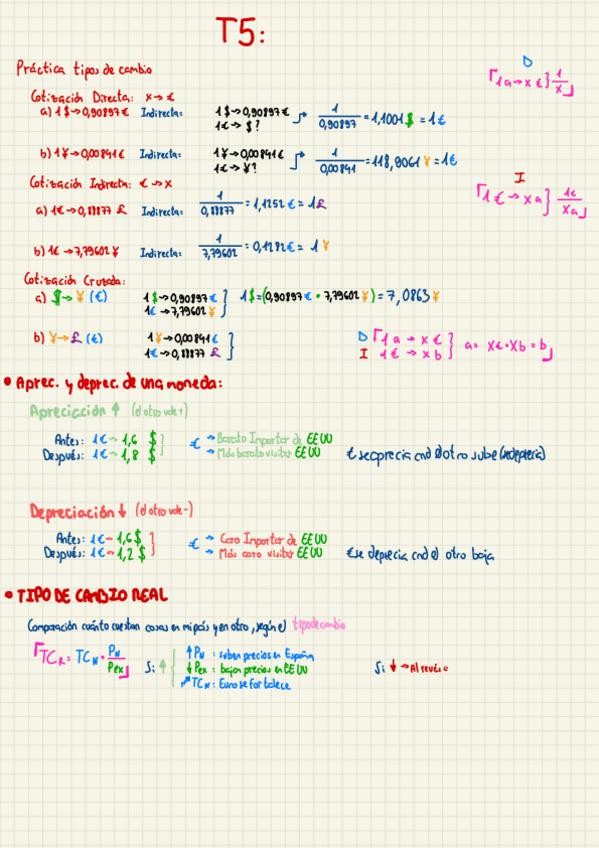 T5:
Práctica tipos de cambio
D
「1a → x €} 1/x」
Cotización Directa: x → €
a) 1$ → 0,90897€ Indirecta: 1$ → 0,90897€
1€ → $? 1/0,90897 = 1,1001 $ = 1€
b) 1¥ → 0,00841€ Indirecta: 1¥ → 0,00841€
1€ → ¥? 1/0,00841 = 118,9061 ¥ = 1€
Cotización Indirecta: € → x
I
「1€ → xa} 1€/xa」
a) 1€ → 0,88877 £ Indirecta: 1/0,88877 = 1,1252 € = 1£
b) 1€ → 7,79602 ¥ Indirecta: 1/7,79602 = 0,1282 € = 1 ¥
Cotización Cruzada:
a) $ → ¥ (€) 1$ → 0,90897€
1€ → 7,79602 ¥ } 1$ = (0,90897€ · 7,79602¥) = 7,0863 ¥
b) ¥ → £ (€) 1¥ → 0,00841€
1€ → 0,88877 £ }
D 「1a → x €
I 1€ → xb } a = x€ · xb = b」
• Aprec. y deprec. de una moneda:
Apreciación ↑ (el otro vale +)
Antes: 1€ → 1,6 $
Después: 1€ → 1,8 $
€ → Barato Importar de EEUU
→ Más barato visitar EEUU
€ se aprecia cnd el otro sube
Depreciación ↓ (el otro vale -)
Antes: 1€ → 1,6$
Después: 1€ → 1,2 $
€ → Caro Importar de EEUU
→ Más caro visitar EEUU
€ se deprecia cnd el otro baja
• TIPO DE CAMBIO REAL
Comparación cuánto cuestan cosas en mi país y en otro, según el tipo de cambio
「TCR = TCN · PN/Pex」
Si ↑ { ↑ PN : suben precios en España
↓ Pex : bajan precios en EEUU
↗ TCN : Euro se fortalece
Si ↓ → Al revés